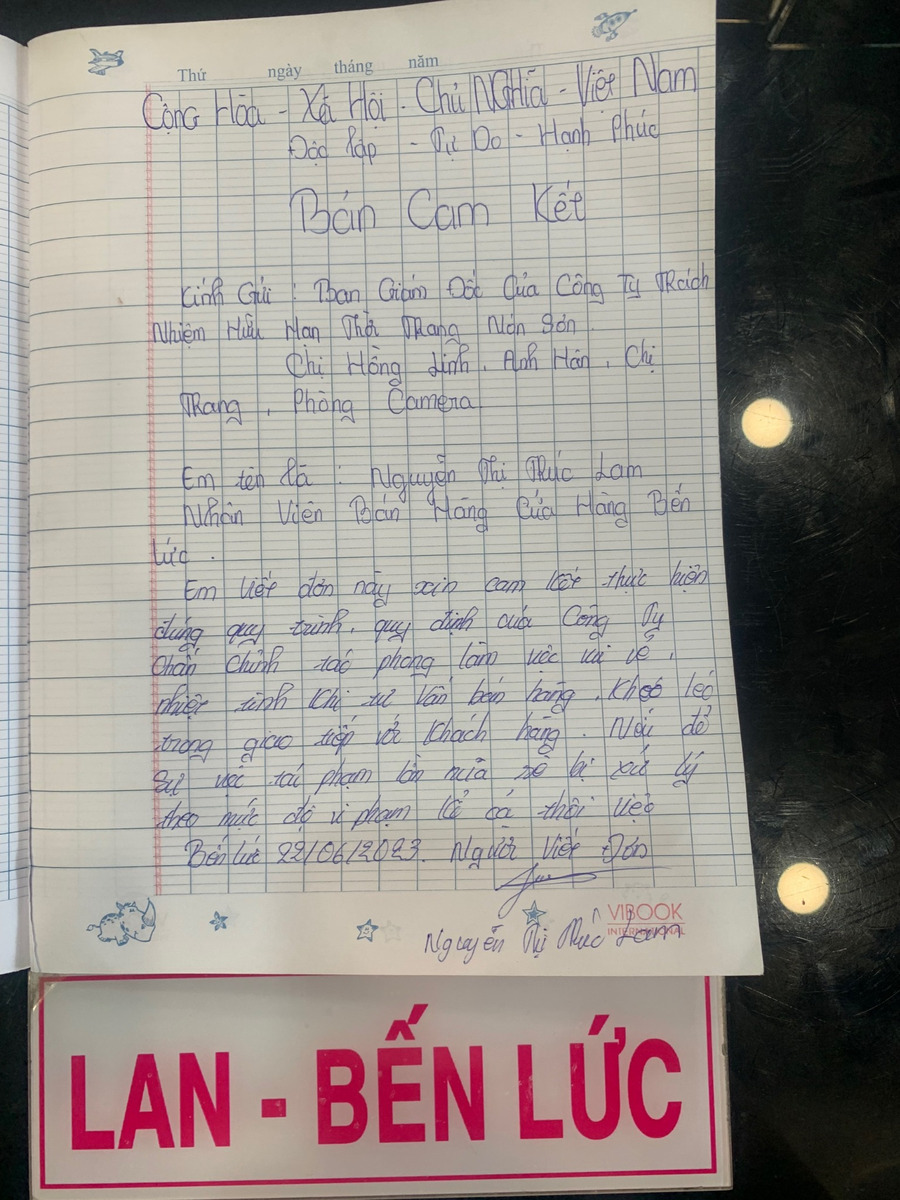 Thứ ngày tháng năm
Cộng Hòa - Xã Hội - Chủ NGHĩA - Việt Nam
Độc lập - Tự Do - Hạnh Phúc
Bản Cam Kết
Kính Gửi : Ban Giám Đốc Của Công Ty TRách
Nhiệm Hữu Hạn Thời TRang Nón Sơn.
Chị Hồng Linh, Anh Hân, Chị
TRang, Phòng Camera
Em tên là : Nguyễn Thị Thúc Lam
Nhân Viên Bán Hàng Cửa Hàng Bến
Lức.
Em viết đơn này xin cam kết thực hiện
đúng quy trình, quy định của Công Ty
chấn chỉnh tác phong làm việc vui vẽ,
nhiệt tình khi tư vấn bán hàng, Khéo léo
trong giao tiếp với khách hàng. Nếu để
sự việc tái phạm lần nữa sẽ bị xử lý
theo mức độ vi phạm kể cả thôi việc
Bến Lức 22/06/2023. Người Viết Đơn
Nguyễn Thị Thúc Lam
VIBOOK
INTERNATIONAL
LAN - BẾN LỨC